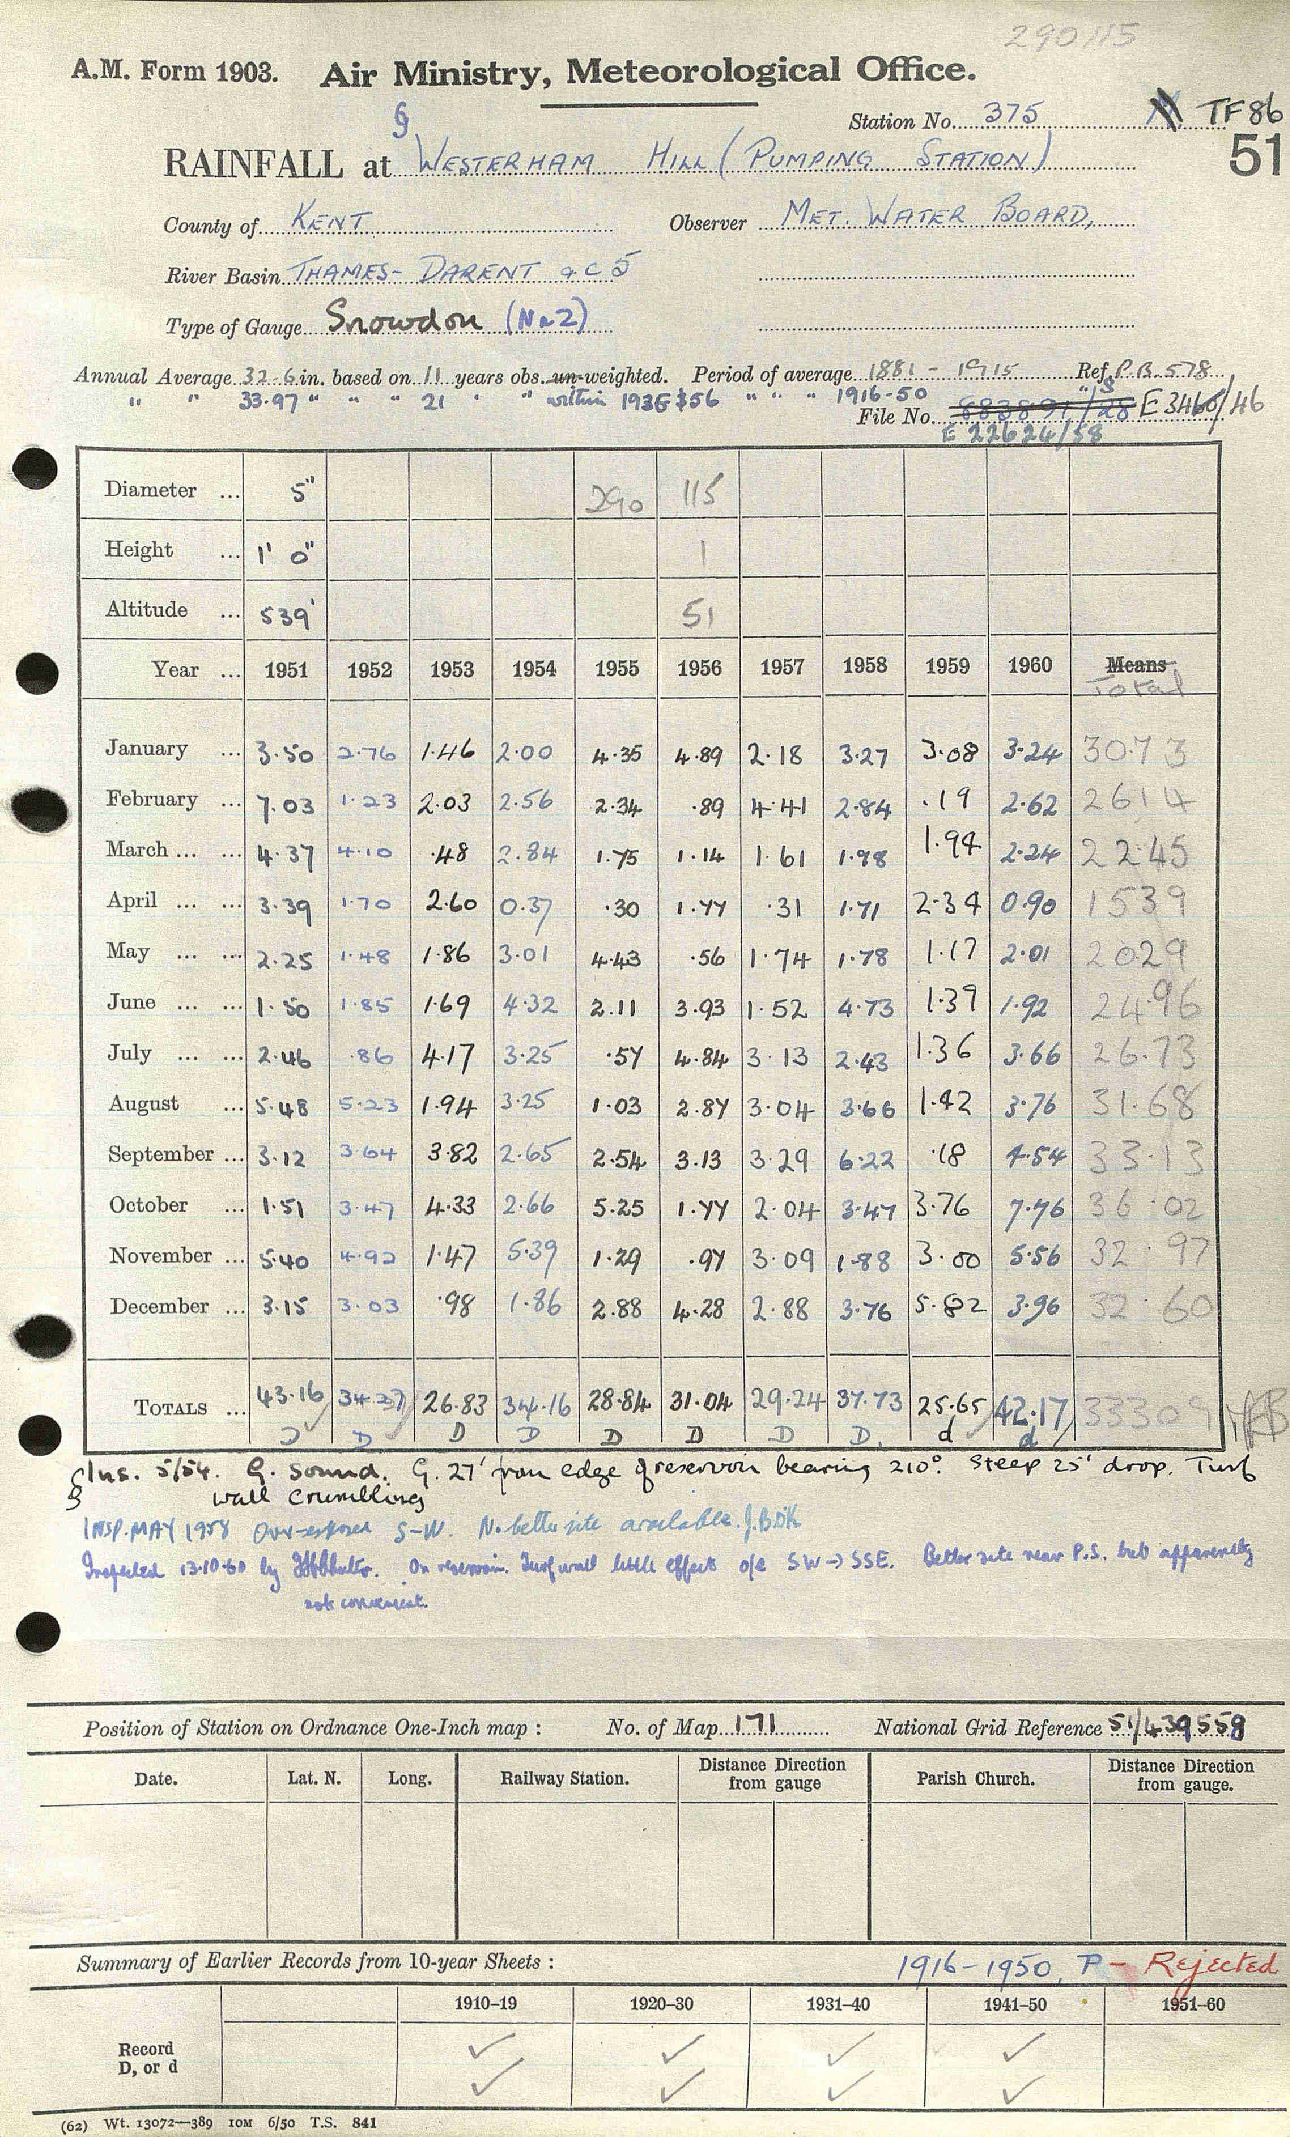 290115
A.M. Form 1903. Air Ministry, Meteorological Office.
Station No. 375 TF86
§ 51
RAINFALL at WESTERHAM HILL (PUMPING STATION)
County of KENT Observer MET. WATER BOARD,
River Basin THAMES - DARENT & C 5
Type of Gauge Snowdon (No 2)
Annual Average 32.6 in. based on 11 years obs. un-weighted. Period of average 1881 - 1915 Ref. P.B. 578
" " 33.97 " " " 21 " " within 1936 $56 " " " 1916-50
File No. 883891/28 E 3465/46
E 22624/58
Diameter ... 5" 290 115
Height ... 1' 0" 1
Altitude ... 539' 51
Year ... 1951 1952 1953 1954 1955 1956 1957 1958 1959 1960 Means
Total
January ... 3.50 2.76 1.46 2.00 4.35 4.89 2.18 3.27 3.08 3.24 30.73
February ... 7.03 1.23 2.03 2.56 2.34 .89 4.41 2.84 .19 2.62 26.14
March ... ... 4.37 4.10 .48 2.84 1.75 1.14 1.61 1.98 1.94 2.24 22.45
April ... ... 3.39 1.70 2.60 0.37 .30 1.77 .31 1.71 2.34 0.90 15.39
May ... ... 2.25 1.48 1.86 3.01 4.43 .56 1.74 1.78 1.17 2.01 20.29
June ... ... 1.50 1.85 1.69 4.32 2.11 3.93 1.52 4.73 1.39 1.92 24.96
July ... ... 2.46 .86 4.17 3.25 .57 4.84 3.13 2.43 1.36 3.66 26.73
August ... 5.48 5.23 1.94 3.25 1.03 2.87 3.04 3.66 1.42 3.76 31.68
September ... 3.12 3.64 3.82 2.65 2.54 3.13 3.29 6.22 .18 4.54 33.13
October ... 1.51 3.47 4.33 2.66 5.25 1.77 2.04 3.47 3.76 7.76 36.02
November ... 5.40 4.92 1.47 5.39 1.29 .97 3.09 1.88 3.00 5.56 32.97
December ... 3.15 3.03 .98 1.86 2.88 4.28 2.88 3.76 5.82 3.96 32.60
TOTALS ... 43.16 34.27 26.83 34.16 28.84 31.04 29.24 37.73 25.65 42.17 33309
D D D D D D D D. d d
§ Ins. 5/54. G. Sound. G. 27' from edge of reservoir bearing 210°. Steep 25' drop. Turf
wall crumbling
INSP. MAY 1958 Over-exposed S-W. No better site available. J.B.DK
Inspected 13.10.60 by On reservoir. Turf wall little effect o/e SW→SSE. Better site near P.S. but apparently
not convenient.
Position of Station on Ordnance One-Inch map : No. of Map 171 National Grid Reference 51/439558
Date. Lat. N. Long. Railway Station. Distance Direction from gauge Parish Church. Distance Direction from gauge.
Summary of Earlier Records from 10-year Sheets : 1916-1950, P - Rejected
1910–19 1920–30 1931–40 1941–50 1951–60
Record ✓ ✓ ✓ ✓
D, or d ✓ ✓ ✓ ✓
(62) Wt. 13072—389 10M 6/50 T.S. 841